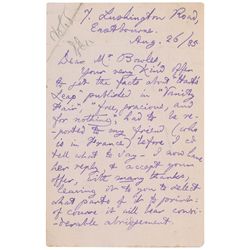 7, Lushington Road,
Eastbourne.
Aug. 26/85
Dear Mr Bowles,
Your very kind offer
to put the facts about
published in "Vanity
Fair", "free, gracious, and
for nothing", had to be re-
ported to my friend (who
is in France) before I cd
tell what to say - I now have
her reply & accept your
offer, with many thanks,
leaving it to you to select
what parts of it to print -
of course it will bear consi-
derable abridgement.